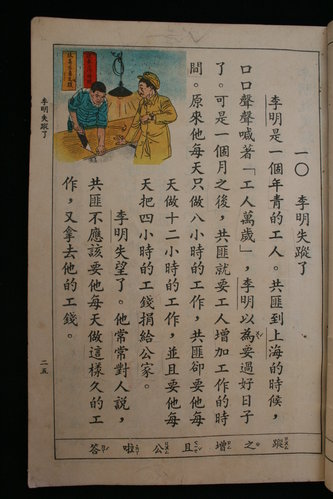 一〇　李明失蹤了
李明是一個年青的工人。共匪到上海的時候，
口口聲聲喊著「工人萬歲」，李明以為要過好日子
了。可是一個月之後，共匪就要工人增加工作的時
間。原來他每天只做八小時的工作，共匪卻要他每
天做十二小時的工作，並且要他每
天把四小時的工錢捐給公家。
李明失望了。他常常對人說，
共匪不應該要他每天做這樣久的工
作，又拿去他的工錢。
李明失蹤了
二五
蹤　之　增　且　公　啦　答